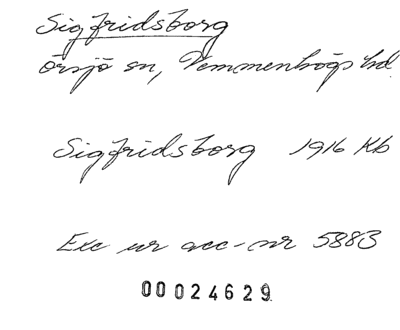 Sigfridsborg
Örsjö sn, Vemmenhögs hd.
Sigfridsborg 1916 Kb
Exc ur acc-nr 5883
00024629